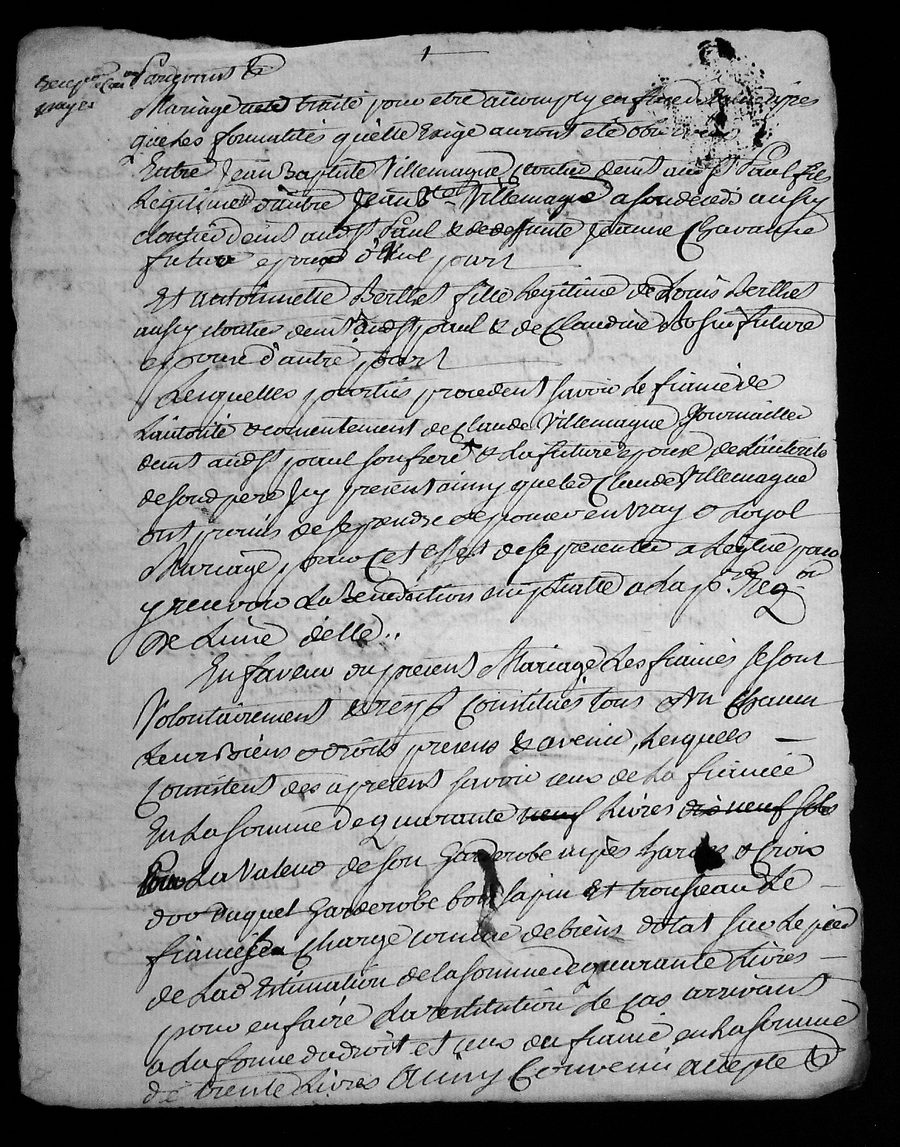 1
Pardevant &
Mariage traité pour etre accomply en face d'eglise apres
que les formalités quelle Exige auront eté observées
Entre Jean Baptiste Villemagne cloutier demt au St Paul fils
Legitime d'autre Jean Bte Villemagne a son deceds aussy
cloutier demt audt St Paul & de deffunte Jeanne Chavanne
futur epoux d'Une part
Et antoinette Berlhet fille Legitime de Louis Berlhet
aussy cloutier demt audt St paul & de Claudine future
epouse d'autre part
Lesquelles parties procedent savoir Le fiancé de
L'autorité & consentement de Claude Villemagne Journaillier
demt audt St paul son frere & La future epouse de L'autorité
de sond pere Icy present ainsy que led Claude Villemagne
ont promis de se prendre & epouser en vray & Loyal
Mariage pour Cet effet de se presenter a Leglise pour
y recevoir La Benediction nuptialle a La pre Reqon
De Lune delle..
En faveur du present Mariage Les fiancés se sont
Volontairement & respt Constitués tous Un Chacun
Leurs Biens & droits presens & avenir, Lesquels
Consistent des apresent savoir ceux de La fiancée
En La somme de quarante neuf Livres dix neuf sols
pour La Valeur de son Garderobe nipes hardes & Croix
d'or duquel Garderobe bois sapin Et trousseau Le
fiancé sen Charge comme de biens dotal sur Le pied
de Lad Estimation de la somme de quarante Livres
pour en faire La restitution Le cas arrivant
a La forme du droit et ceux du fiancé en La somme
de trente Livres Ainsy Convenu accepté &